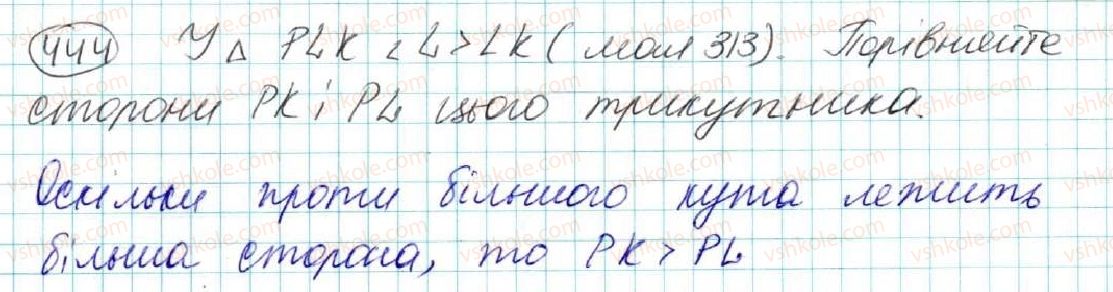 444 У △ PLK ∠L>∠K (мал 313). Порівняйте
сторони PK і PL цього трикутника.
Оскільки проти більшого кута лежить
більша сторона, то PK > PL